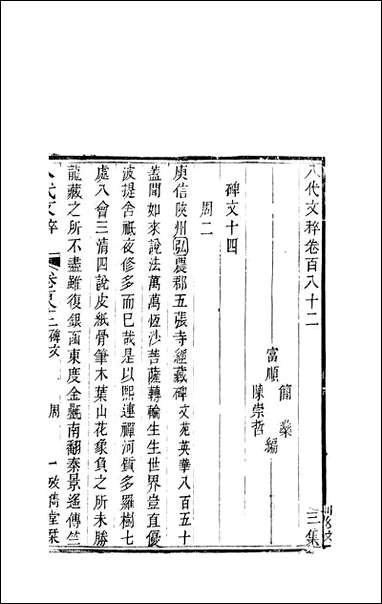 八代文粹卷百八十二
三集
富順
簡燊
陳崇哲
編
碑文十四
周二
庾信陝州弘農郡五張寺經藏碑文苑英華八百五十
蓋聞如來說法萬萬恆沙菩薩轉輪生生世界豈直優
波提舍祇夜修多而巳哉是以熙連禪河質多羅樹七
處八會三清四說皮紙骨筆木葉山花象負之所未勝
龍藏之所不盡雖復銀函東度金甀南翻秦景遙傳竺
八代文粹
卷百八十二碑文
周
一
攷雋堂栞